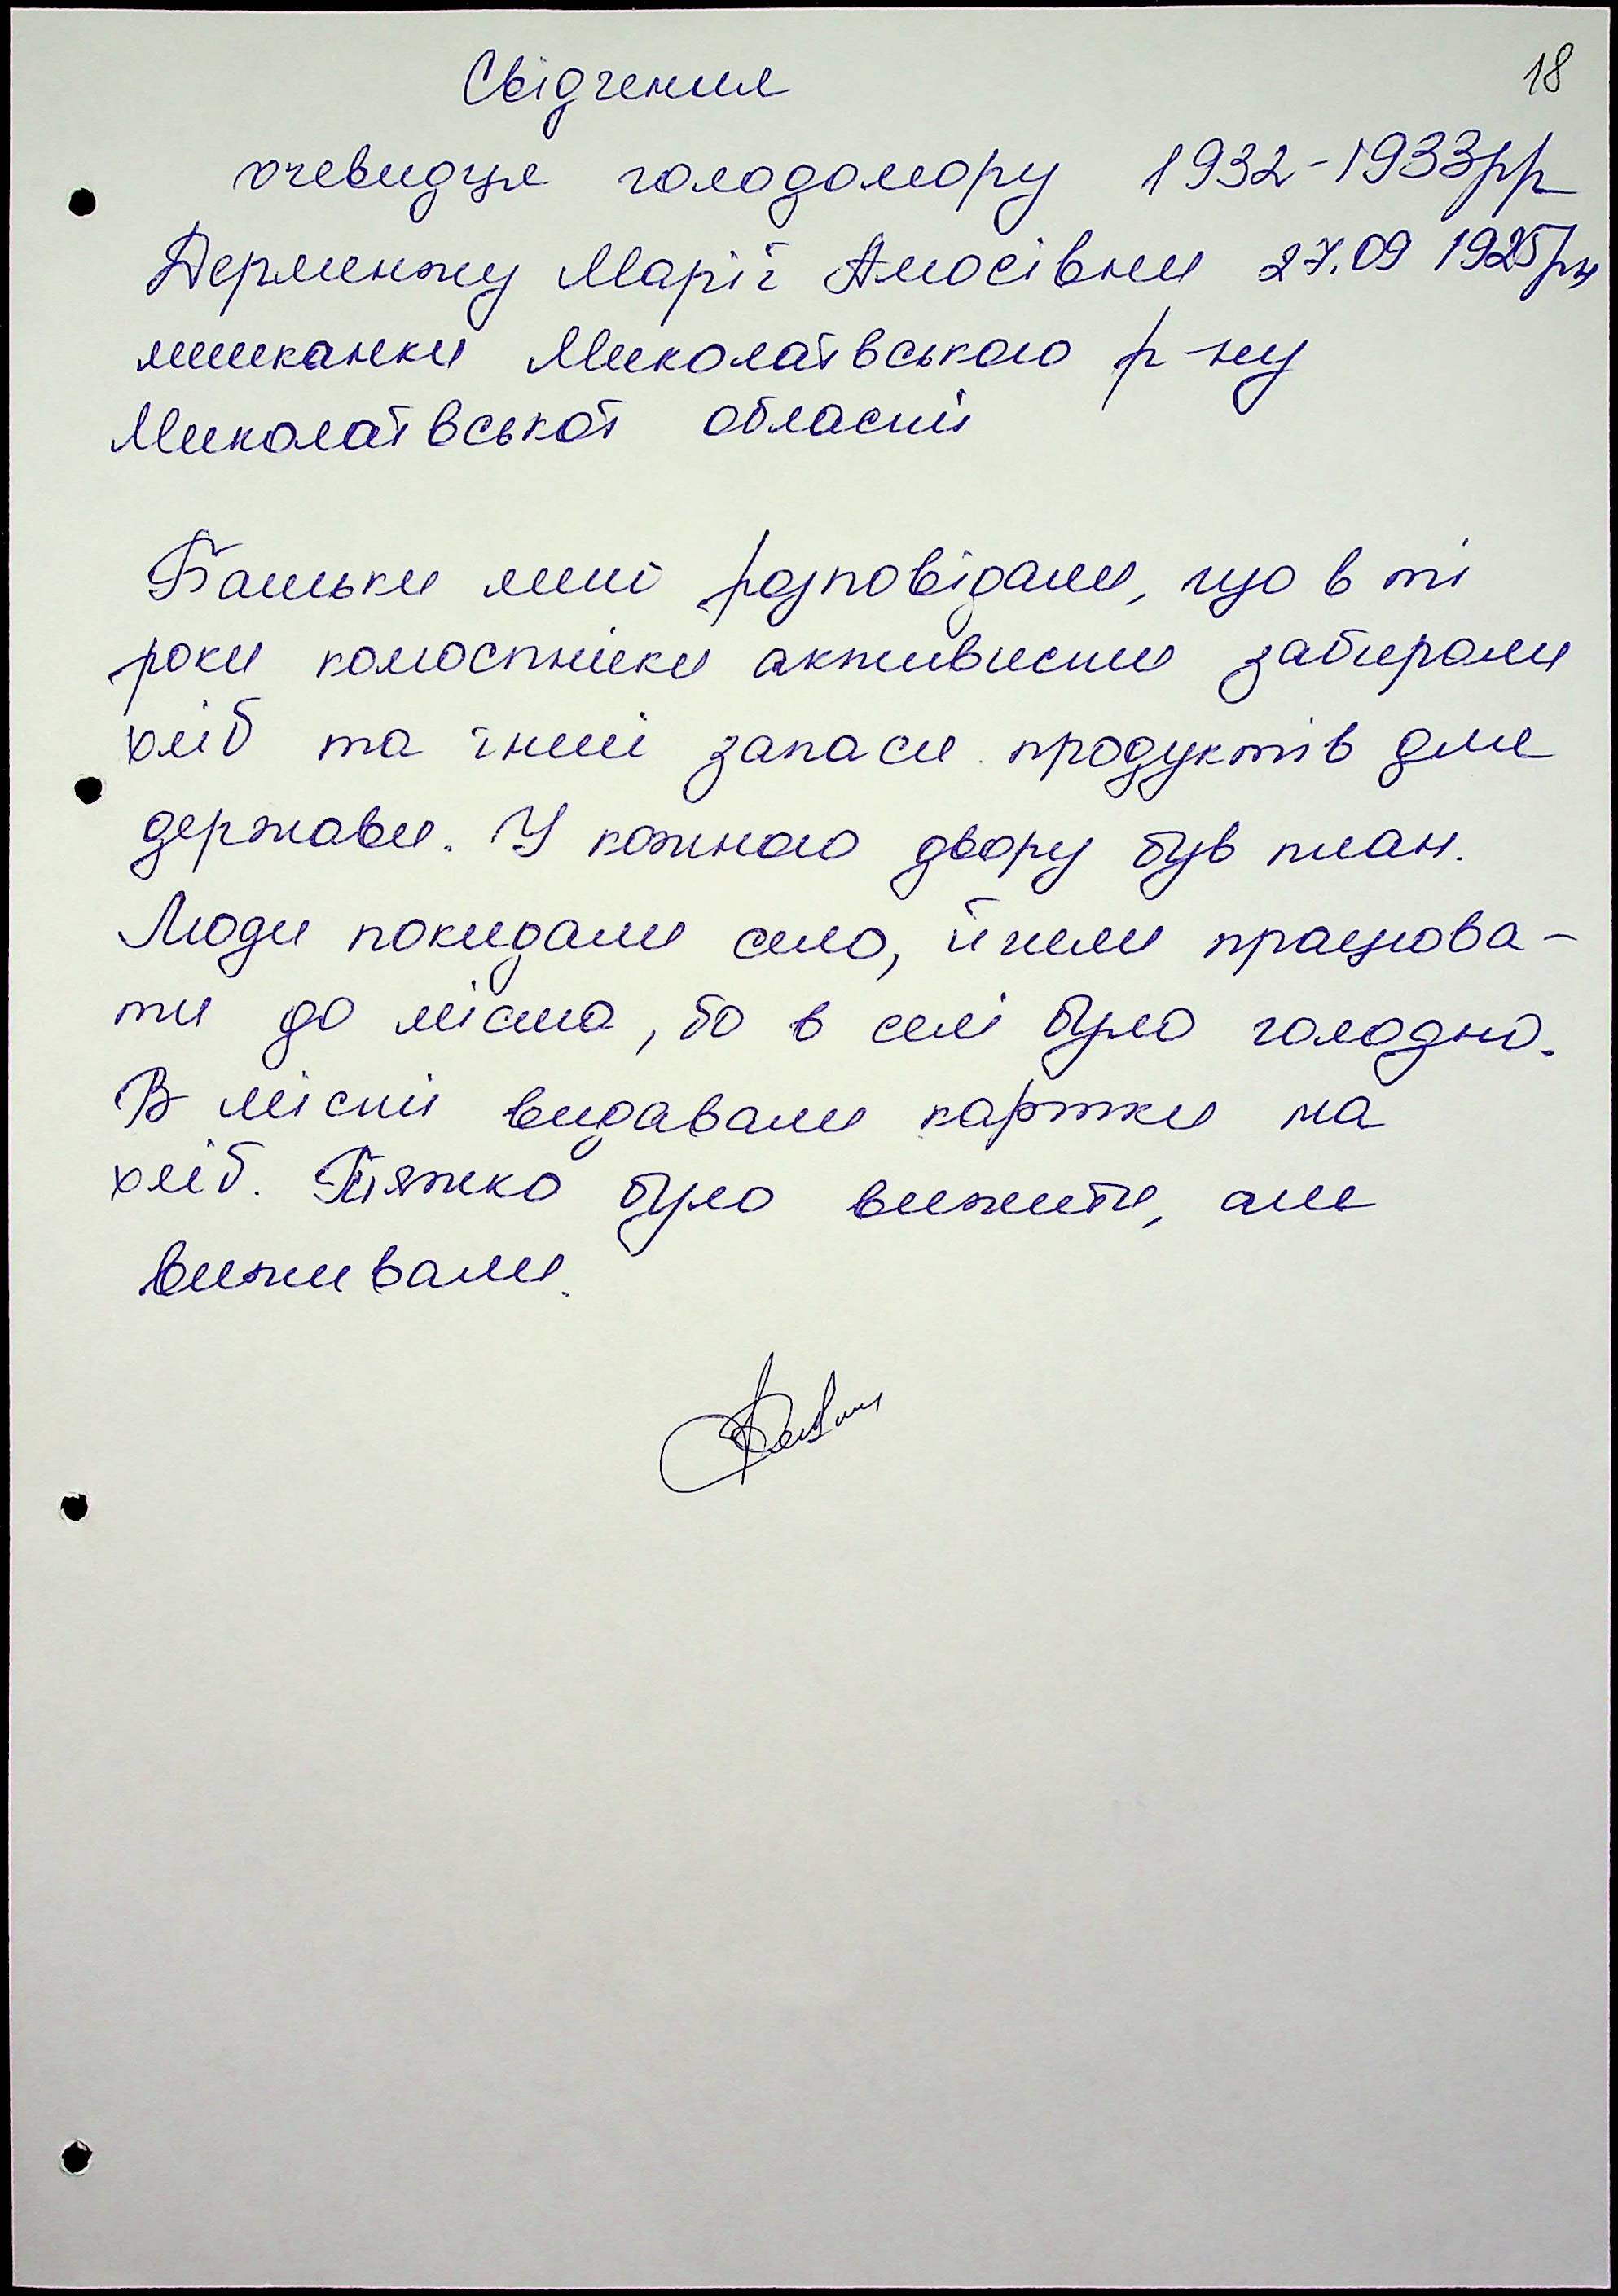 18
Свідчення
очевидця голодомору 1932-1933рр
Дерменжу Марії Амосівни 27.09 1925рн
мешканки Миколаївського р-ну
Миколаївської області
Батьки мені розповідали, що в ті
роки комсомольці активисти забирали
хліб та інші запаси продуктів для
держави. У кожного двору був план.
Люди покидали село, йшли працюва-
ти до міста, бо в селі було голодно.
В місті видавали картки на
хліб. Тяжко було вижити, але
виживали.